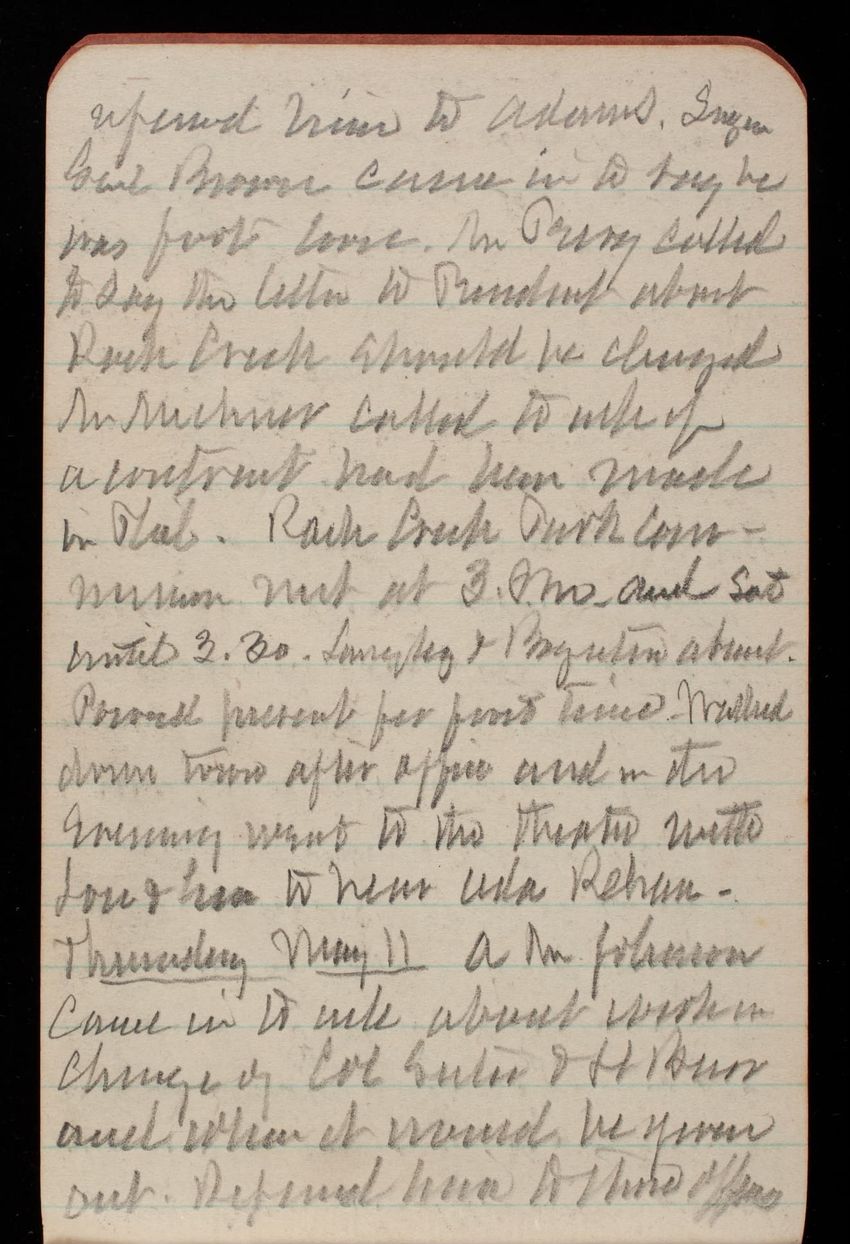 referred him to Adams.
Genl Brown came in to say he
was foot loose. Mr Perry called
to say the letter to President about
Rock Creek should be changed
Mr called to ask if
a contract had been made
in Phil. Rock Creek Park Com-
mission met at 3. and sat
until 3.30. Langley & Boynton absent.
present for first time. Walked
down town after office and in the
Evening went to the theater with
to hear Ada Rehan-
Thursday May 11 A Mr Johnson
came in to ask about work in
charge of Col & Lt Burr
and when it would be given
out. Referred him to those offices